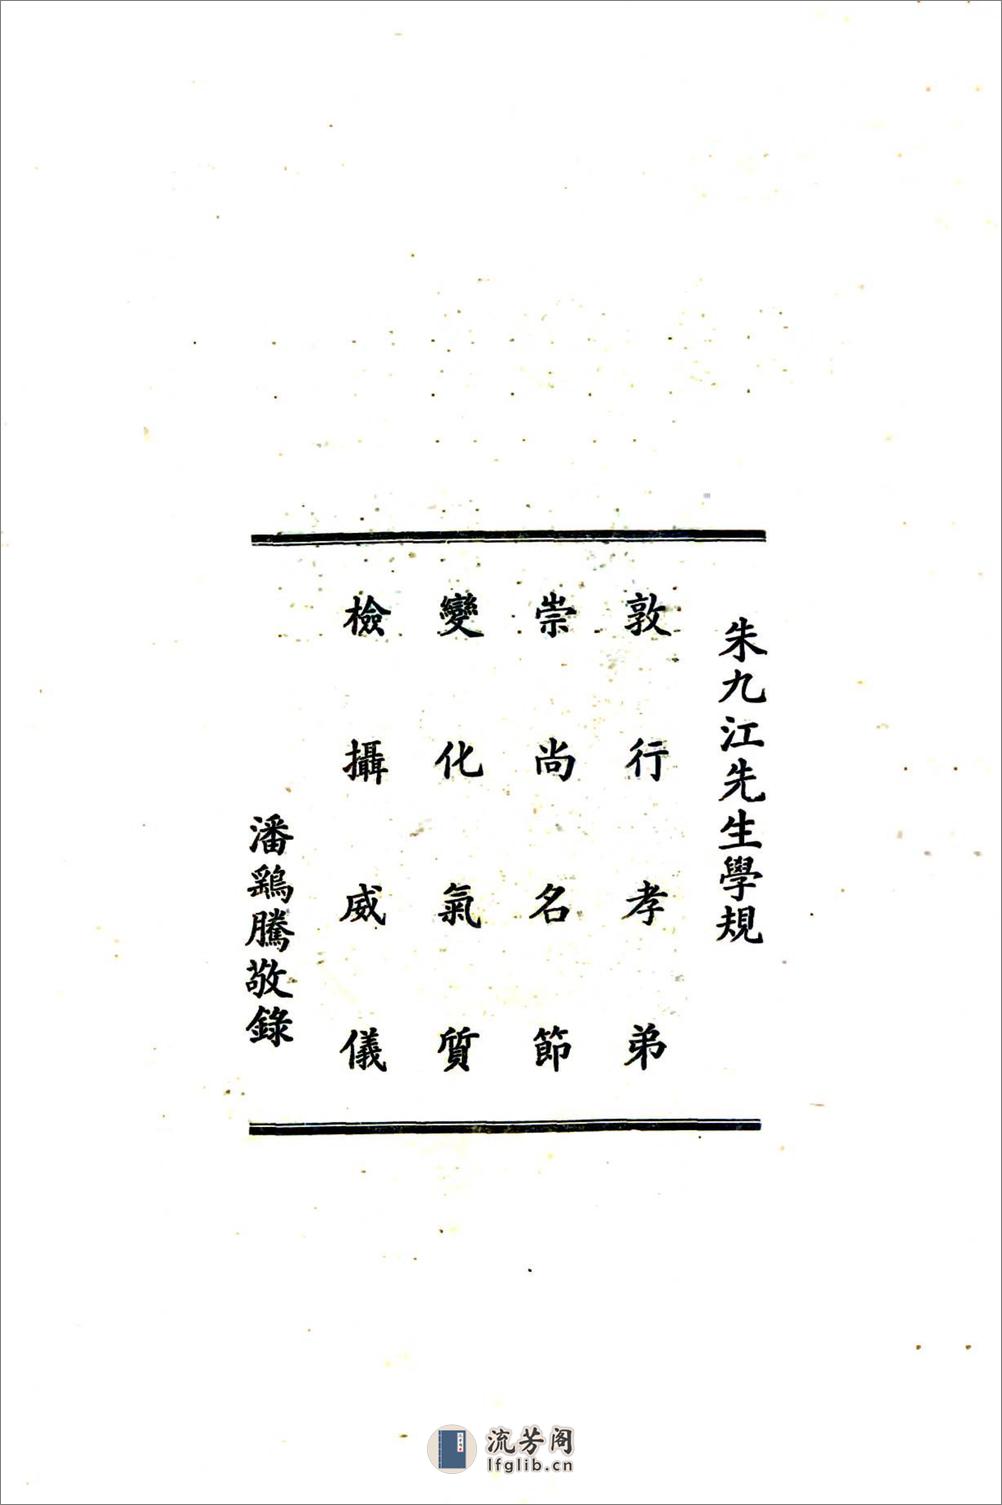 朱九江先生學規
敦行孝弟
崇尚名節
變化氣質
檢攝威儀
潘鶏騰敬錄
流芳阁
lfglib.cn